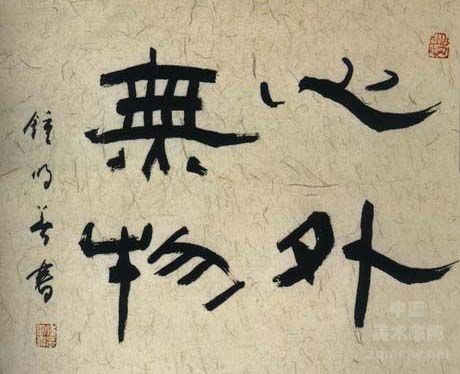 心外
無物
鍾明善書
中国
美术家网
zgmsjw.net